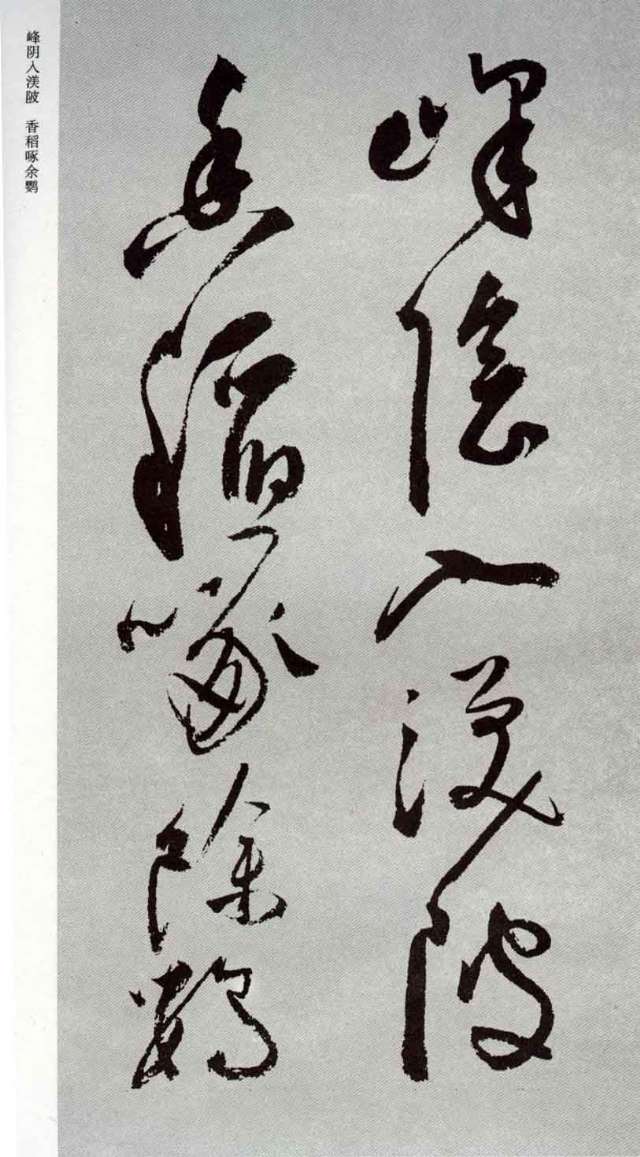 峰陰入渼陂
香稻啄除鸚
峰阴入渼陂　香稻啄余鹦